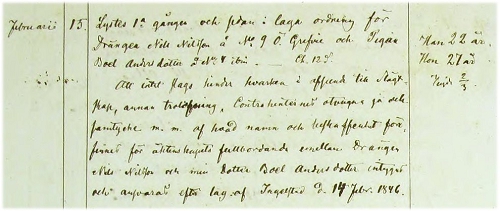 Februarii 15. Lystes 1a gången och sedan i laga ordning för
Drängen Nils Nilsson å No 9 Ö. Grefvie och Pigan
Boel Andersdotter å No 4 ibm. Ch. 12 s.
Han 22 år.
Hon 27 år
Att intet slags hinder hvarken i afseende till Skägt-
skap, annan trolofning, Contrahenternes otvungna ja och
samtycke m. m. af hvad namn och beskaffenhet före-
finnes för äktenskapets fullbordande emellan Drängen
Nils Nilsson och min Dotter Boel Andersdotter intygas
och ansvaras efter lag. af Ingelstad d. 14 Febr. 1846.